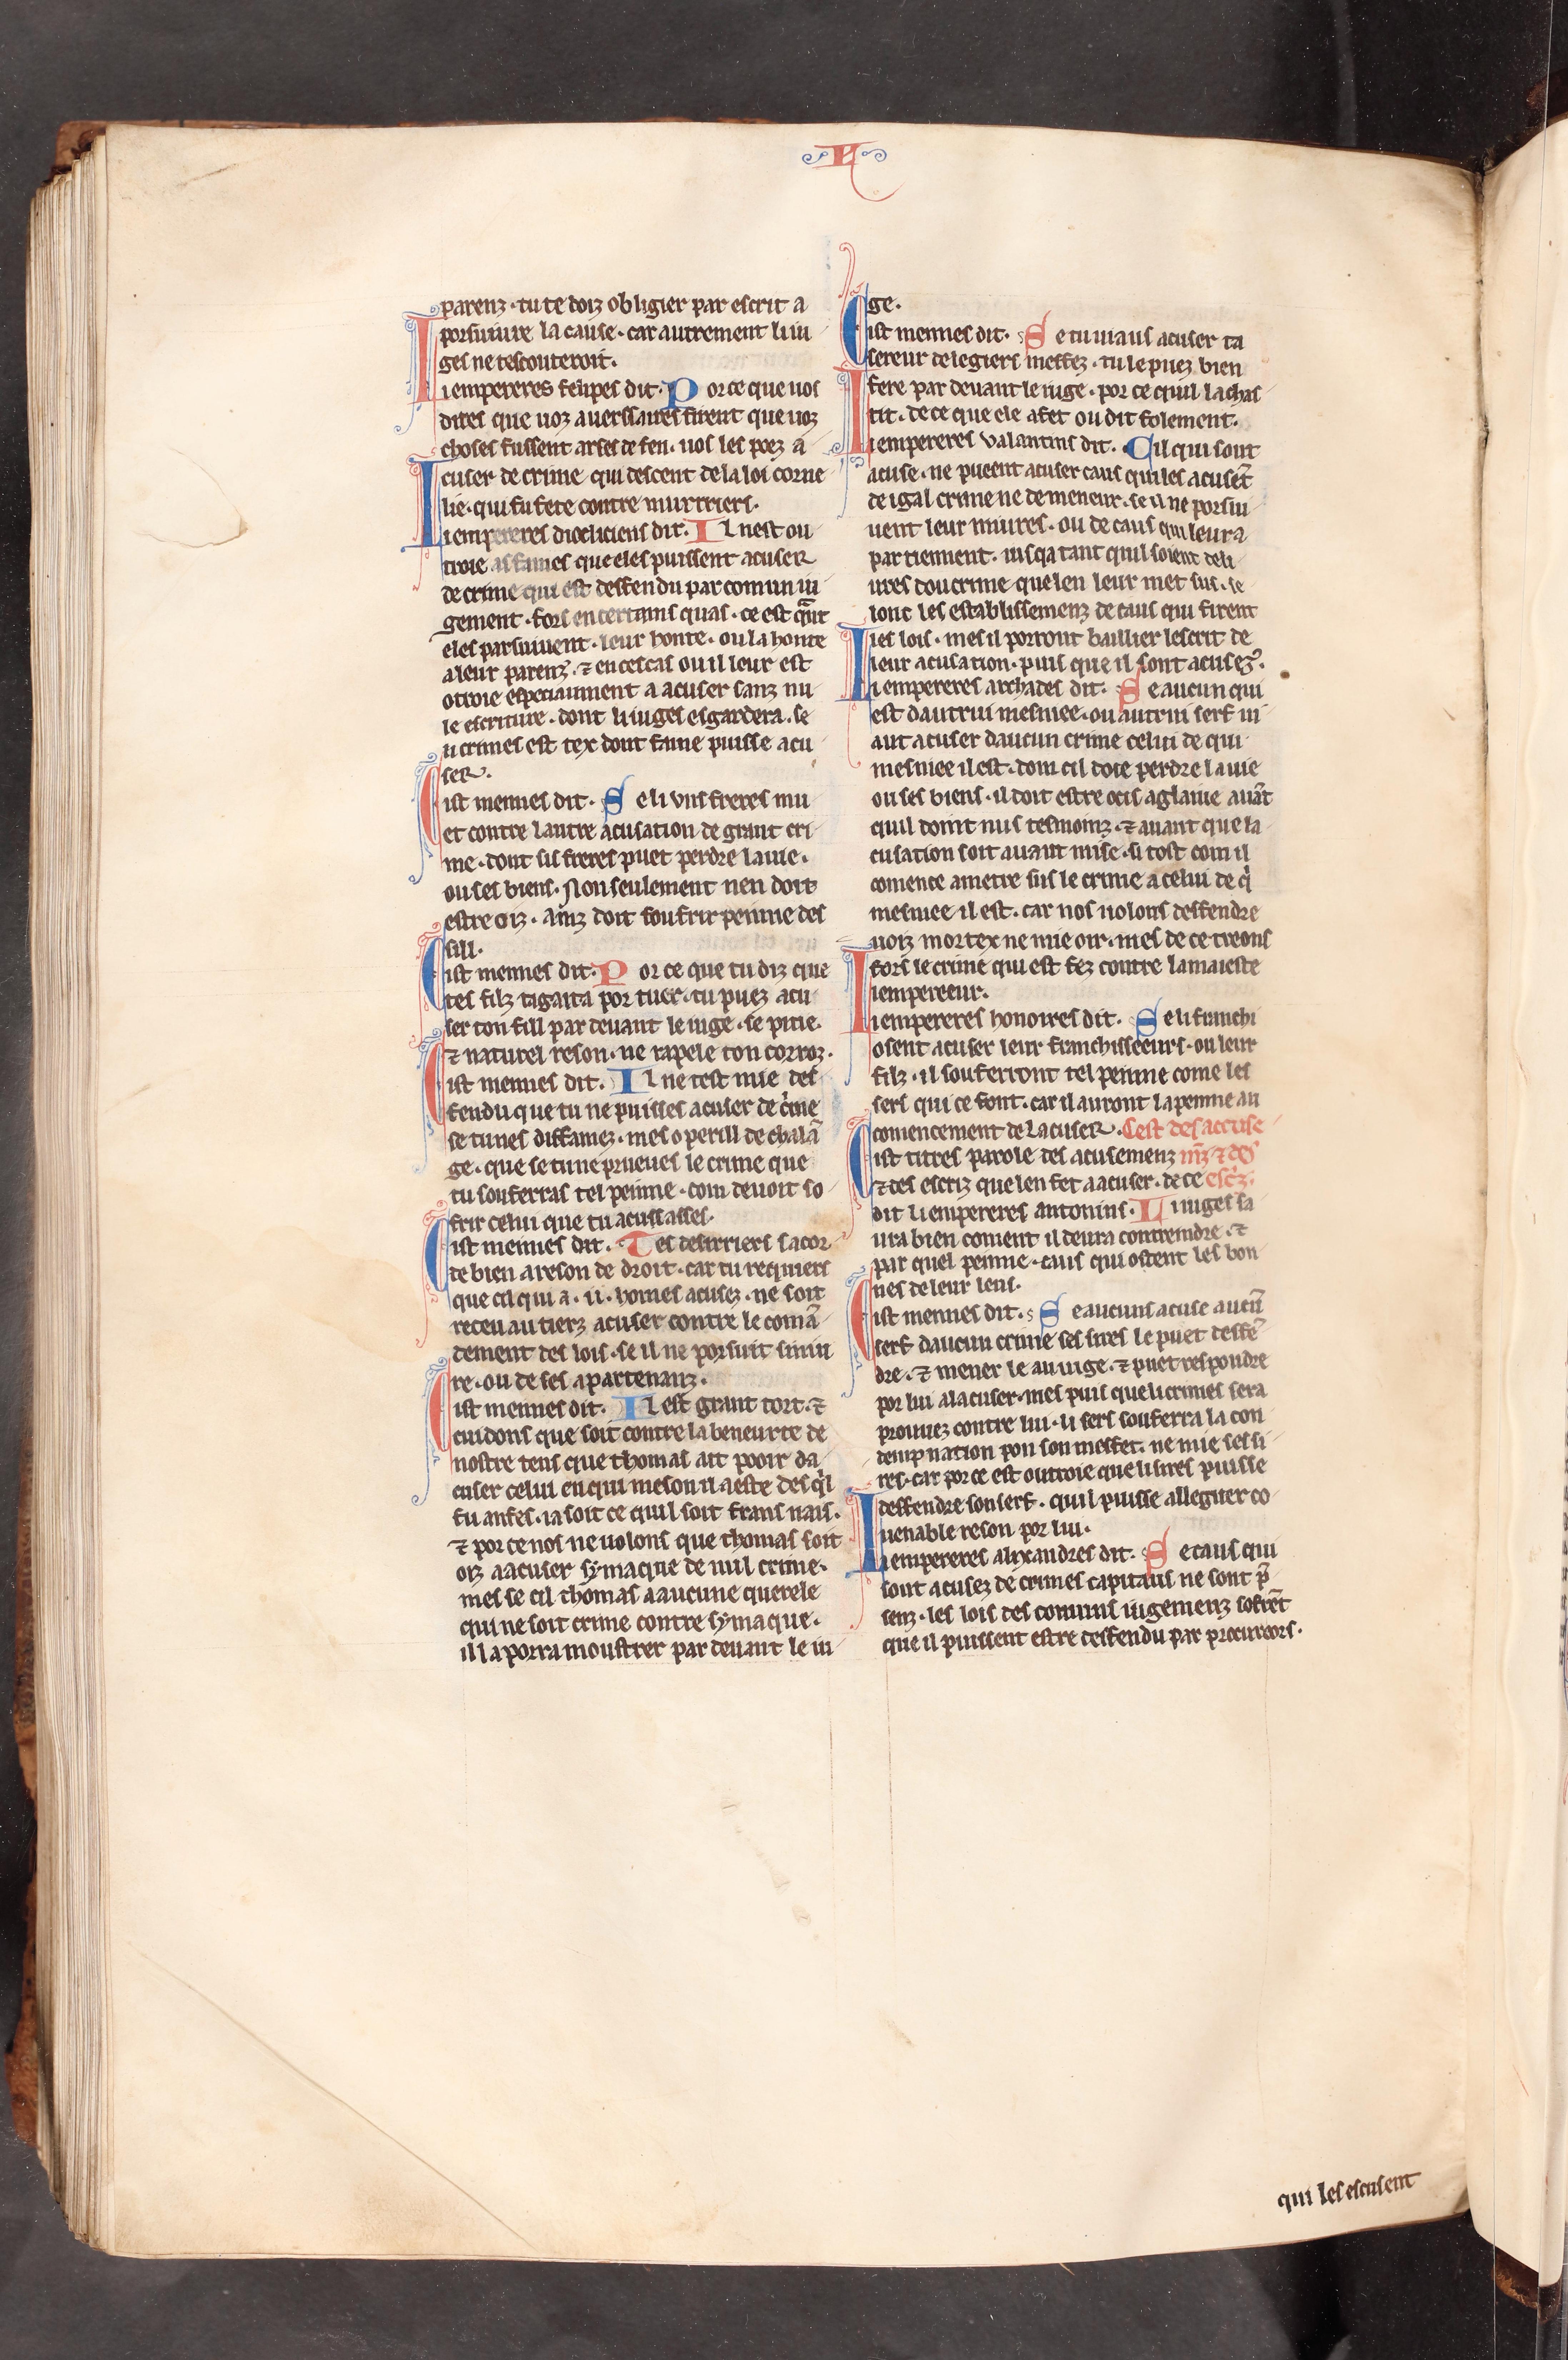 L
parenz · tu te doiz obligier par escrit a
porsuiure la cause · car autrement li iu
ges ne tescouteroit.
Li empereres felipes dit. Por ce que uos
dites que uoz auerssaires firent que uoz
choses fussent arses de feu · uos les poez a
cuser de crime qui descent de la loi corne
lie · qui fu fete contre murtriers.
Li empereres diocliciens dit. Il nest ou
troie as fames que eles puissent acuser
de crime qui est deffendu par comun iu
gement · fors en certains quas · ce est q̃nt
eles parsuiuent · leur honte · ou la honte
a leur parenz · ⁊ en ces cas ou il leur est
otroie especiaument a acuser sanz nu
le escriture · dont li iuges esgardera · se
li crimes est tex dont fame puisse acu
ser.
Cist meimes dit. Se li uns freres mu
et contre lautre acusation de grant cri
me · dont sis freres puet perdre la uie ·
ou ses biens · Non seulement nen doit
estre oiz · ainz doit soufrir peinne des
sill.
Cist meimes dit. Por ce que tu diz que
tes filz tigaita por tuer · tu puez acu
ser ton fill par deuant le iuge · se pitie ·
⁊ naturel reson · ne rapele ton corroz.
Cist meimes dit. Il ne test mie def
fendu que tu ne puisses acuser de c'ime
se tu nes diffamez · mes o perill de chalã
ge · que se tu ne prueues le crime que
tu souferras tel peinne · com deuoit so
frir celui que tu acussasses.
Cist meimes dit. Tes desirriers sacor
de bien a reson de droit · car tu requiers
que cil qui a · ii · homes acusez · ne soit
receu au tierz acuser contre le comã
dement des lois · se il ne porsuit siniu
re · ou de ses apartenanz.
Cist meimes dit. Il est grant tort · ⁊
cuidons que soit contre la beneurte de
nostre tens que thomas ait pooir da
cuser celui en qui meson il a este des q̓l
fu anfes · ia soit ce quil soit frans nais.
⁊ por ce nos ne uolons que thomas soit
oiz a acuser symaque de nul crime ·
mes se cil thomas a aucune querele
qui ne soit crime contre symaque ·
il la porra moustrer par deuant le iu
ge.
Cist meimes dit. Se tu uiaus acuser ta
sereur de legiers meffez · tu le puez bien
fere par deuant le iuge · por ce quil la chas
tit · de ce que ele a fet ou dit folement.
Li empereres ualantins dit. Cil qui sont
acuse · ne pueent acuser caus qui les acusẽt
de igal crime ne de meneur · se il ne porsiu
uent leur iniures · ou de caus qui leur a
partiennent · iusqa tant quil soient deli
ures dou crime que len leur met sus · se
lonc les establissemenz de caus qui firent
les lois · mes il porront baillier lescrit de
leur acusation · puis que il sont acusez.
Li empereres archades dit. Se aucun qui
est dautrui mesniee · ou autrui serf ui
aut acuser daucun crime celui de qui
mesniee il est · dom cil doie perdre la uie
ou ses biens · il doit estre ocis a glaiue auãt
quil doint nus tesmoinz · ⁊ auant que la
cusation soit auant mise · si tost com il
comence a metre sus le crime a celui de q̓
mesniee il est · car nos uolons deffendre
uoiz mortex ne mie oir · mes de ce treons
fors le crime qui est fez contre la maieste
lempereeur.
Li empereres honoires dit. Se li franchi
osent acuser leur franchisseeurs · ou leur
filz · il souferront tel peinne come les
sers qui ce font · car il auront la peinne au
comencement de lacuser. Cest des accuse
Cist titres parole des acusemenz mẽz ⁊ des
⁊ des escriz que len fet a acuser · de ce esc'z.
dit li empereres antonins. Li iuges sa
ura bien coment il deura contreindre · ⁊
par quel peinne · caus qui ostent les bon
nes de leur leus.
Cist meimes dit. Se aucuns acuse aucũ
serf daucun crime ses sires le puet deffẽ
dre · ⁊ mener le au iuge · ⁊ puet respondre
por lui a lacuser · mes puis que li crimes sera
prouuez contre lui · li sers souferra la con
dempnation pou son meffet · ne mie ses si
res · car por ce est outroie que li sires puisse
deffendre son serf · quil puisse alleguer co
uenable reson por lui.
Li empereres alixandres dit. Se caus qui
sont acusez de crimes capitaus ne sont p̃
senz · les lois des comuns iugemenz sofrẽt
que il puissent estre deffendu par procureors.
qui les escusent